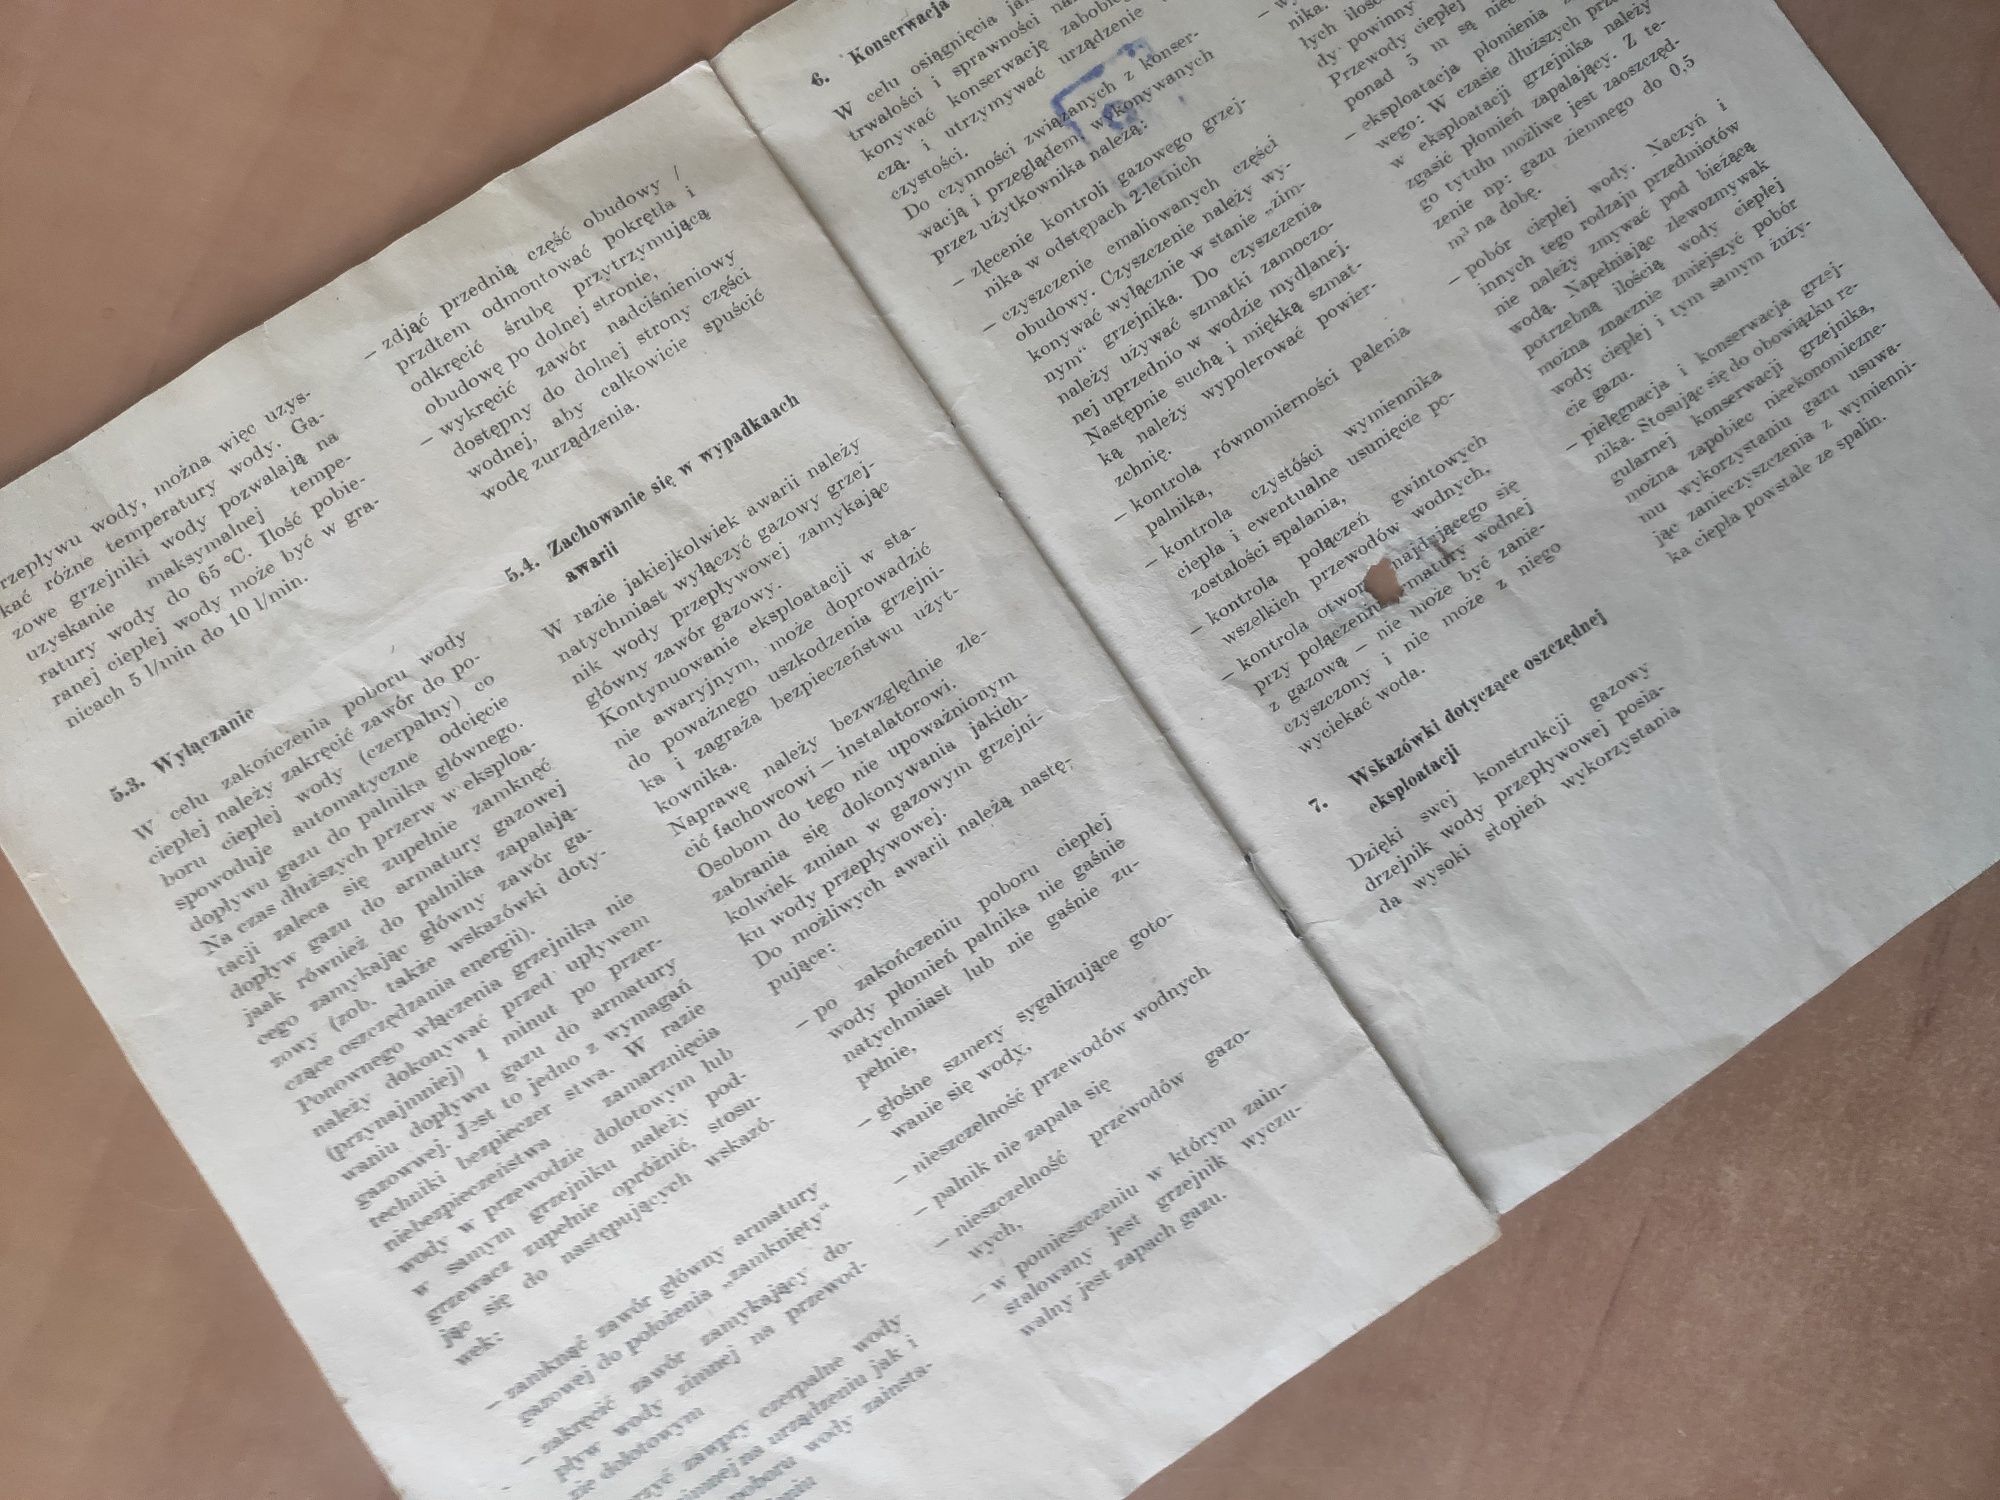 rzepływu wody, można więc uzys-
kać różne temperatury wody. Ga-
zowe grzejniki wody pozwalają na
uzyskanie maksymalnej tempe-
ratury wody do 65 °C. Ilość pobie-
ranej ciepłej wody może być w gra-
nicach 5 l/min do 10 l/min.
5.3. Wyłączanie
W celu zakończenia poboru wody
ciepłej należy zakręcić zawór do po-
boru ciepłej wody (czerpalny) co
spowoduje automatyczne odcięcie
dopływu gazu do palnika głównego.
Na czas dłuższych przerw w eksploa-
tacji zaleca się zupełnie zamknęć
dopływ gazu do armatury gazowej
jaak również do palnika zapalają-
cego zamykając główny zawór ga-
zowy (zob. także wskazówki doty-
czące oszczędzania energii).
Ponownego włączenia grzejnika nie
należy dokonywać przed upływem
(przynajmniej) 1 minut po przer-
waniu dopływu gazu do armatury
gazowwej. Jest to jedno z wymagań
techniki bezpieczer stwa. W razie
niebezpieczeństwa zamarznięcia
wody w przewodzie dolotowym lub
w samym grzejniku należy pod-
grzewacz zupełnie opróżnić, stosu-
jąc się do następujących wskazó-
wek:
– zamknąć zawór główny armatury
gazowej do położenia „zamknięty“
– zakręcić zawór zamykający do-
pływ wody zimnej na przewod-
zie dolotowym
zawpry czerpalne wody
zimnej na urządzeniu jak i
poboru wody zainsta-
– zdjąć przednią część obudowy /
przdtem odmontować pokrętła i
odkręcić śrubę przytrzymującą
obudowę po dolnej stronie,
– wykręcić zawór nadciśnieniowy
dostępny do dolnej strony części
wodnej, aby całkowicie spuścić
wodę zurządzenia.
5.4. Zachowanie się w wypadkaach
awarii
W razie jakiejkolwiek awarii należy
natychmiast wyłączyć gazowy grzej-
nik wody przepływowej zamykając
główny zawór gazowy.
Kontynuowanie eksploatacji w sta-
nie awaryjnym, może doprowadzić
do poważnego uszkodzenia grzejni-
ka i zagraża bezpieczeństwu użyt-
kownika.
Naprawę należy bezwzględnie zle-
cić fachowcowi – instalatorowi.
Osobom do tego nie upoważnionym
zabrania się dokonywania jakich-
kolwiek zmian w gazowym grzejni-
ku wody przepływowej.
Do możliwych awarii należą nastę-
pujące:
– po zakończeniu poboru ciepłej
wody płomień palnika nie gaśnie
natychmiast lub nie gaśnie zu-
pełnie,
– głośne szmery sygalizujące goto-
wanie się wody,
– nieszczelność przewodów wodnych
– palnik nie zapala się
– nieszczelność przewodów gazo-
wych,
– w pomieszczeniu w którym zain-
stalowany jest grzejnik wyczu-
walny jest zapach gazu.
6. Konserwacja
W celu osiągnięcia
trwałości i sprawności
konywać konserwację
czą. i utrzymywać urządzenie
czystości.
Do czynności związanych z konser-
wacją i przeglądem, wykonywanych
przez użytkownika należą:
– zlecenie kontroli gazowego grzej-
nika w odstępach 2-letnich
– czyszczenie emaliowanych części
obudowy. Czyszczenie należy wy-
konywać wyłącznie w stanie „zim-
nym“ grzejnika. Do czyszczenia
należy używać szmatki zamoczo-
nej uprzednio w wodzie mydlanej.
Następnie suchą i miękką szmat-
ką należy wypolerować powier-
zchnię.
– kontrola równomierności palenia
palnika,
– kontrola czystości wymiennika
ciepła i ewentualne usunięcie po-
zostałości spalania,
– kontrola połączeń gwintowych
wszelkich przewodów wodnych,
– kontrola najdującego się
przy połączeniu armatury wodnej
z gazową – nie może być zanie-
czyszczony i nie może z niego
wyciekać woda.
7. Wskazówki dotyczące oszczędnej
eksploatacji
Dzięki swej konstrukcji gazowy
drzejnik wody przepływowej posia-
da wysoki stopień wykorzystania
nika.
łych
dy powinny
Przewody ciepłej
ponad 5 m są
– eksploatacja płomienia
wego: W czasie dłuższych
w eksploatacji grzejnika należy
zgasić płomień zapalający. Z te-
go tytułu możliwe jest zaoszczęd-
zenie np: gazu ziemnego do 0,5
m³ na dobę.
– pobór ciepłej wody. Naczyń i
innych tego rodzaju przedmiotów
nie należy zmywać pod bieżącą
wodą. Napełniając zlewozmywak
potrzebną ilością wody ciepłej
można znacznie zmiejszyć pobór
wody ciepłej i tym samym zuży-
cie gazu.
– pielęgnacja i konserwacja grzej-
nika. Stosując się do obowiązku re-
gularnej konserwacji grzejnika,
można zapobiec nieekonomiczne-
mu wykorzystaniu gazu usuwa-
jąc zanieczyszczenia z wymienni-
ka ciepła powstałe ze spalin.